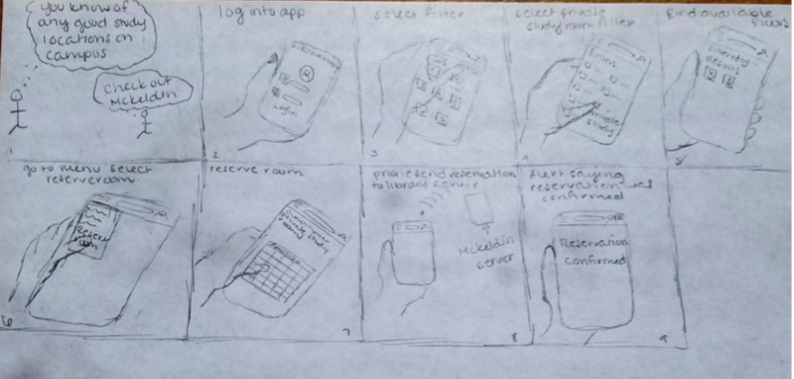 you know of
any good study
locations on
campus
Check out
Mckeldin
1
log into app
Login
2
select filter
3
select private
study room filter
private
study
4
Find available
5
go to menu select
reserve room
Reserve
room
6
reserve room
7
phone send reservation
to library server
Mckeldin
server
8
Alert saying
reservation was
confirmed
Reservation
confirmed
9